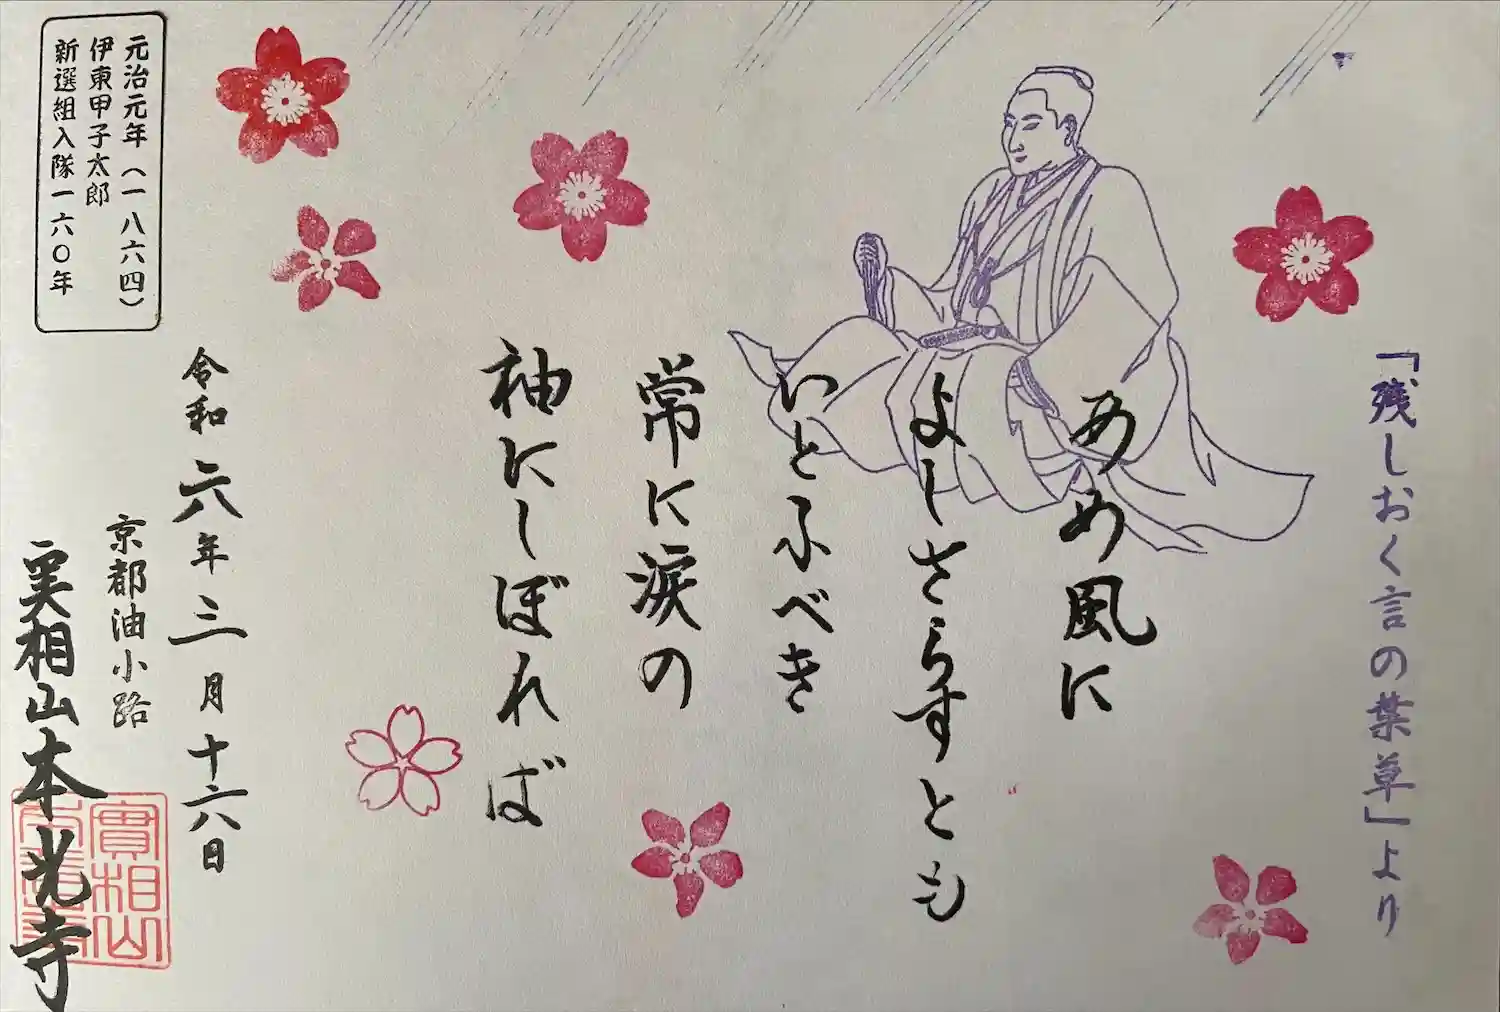 「残しおく言の葉草」より
あめ風に
よしさらすとも
いとふべき
常に涙の
袖にしぼれば
令和六年三月十六日
京都油小路
実相山本光寺
元治元年（一八六四）
伊東甲子太郎
新選組入隊一六〇年
實相山
本光寺